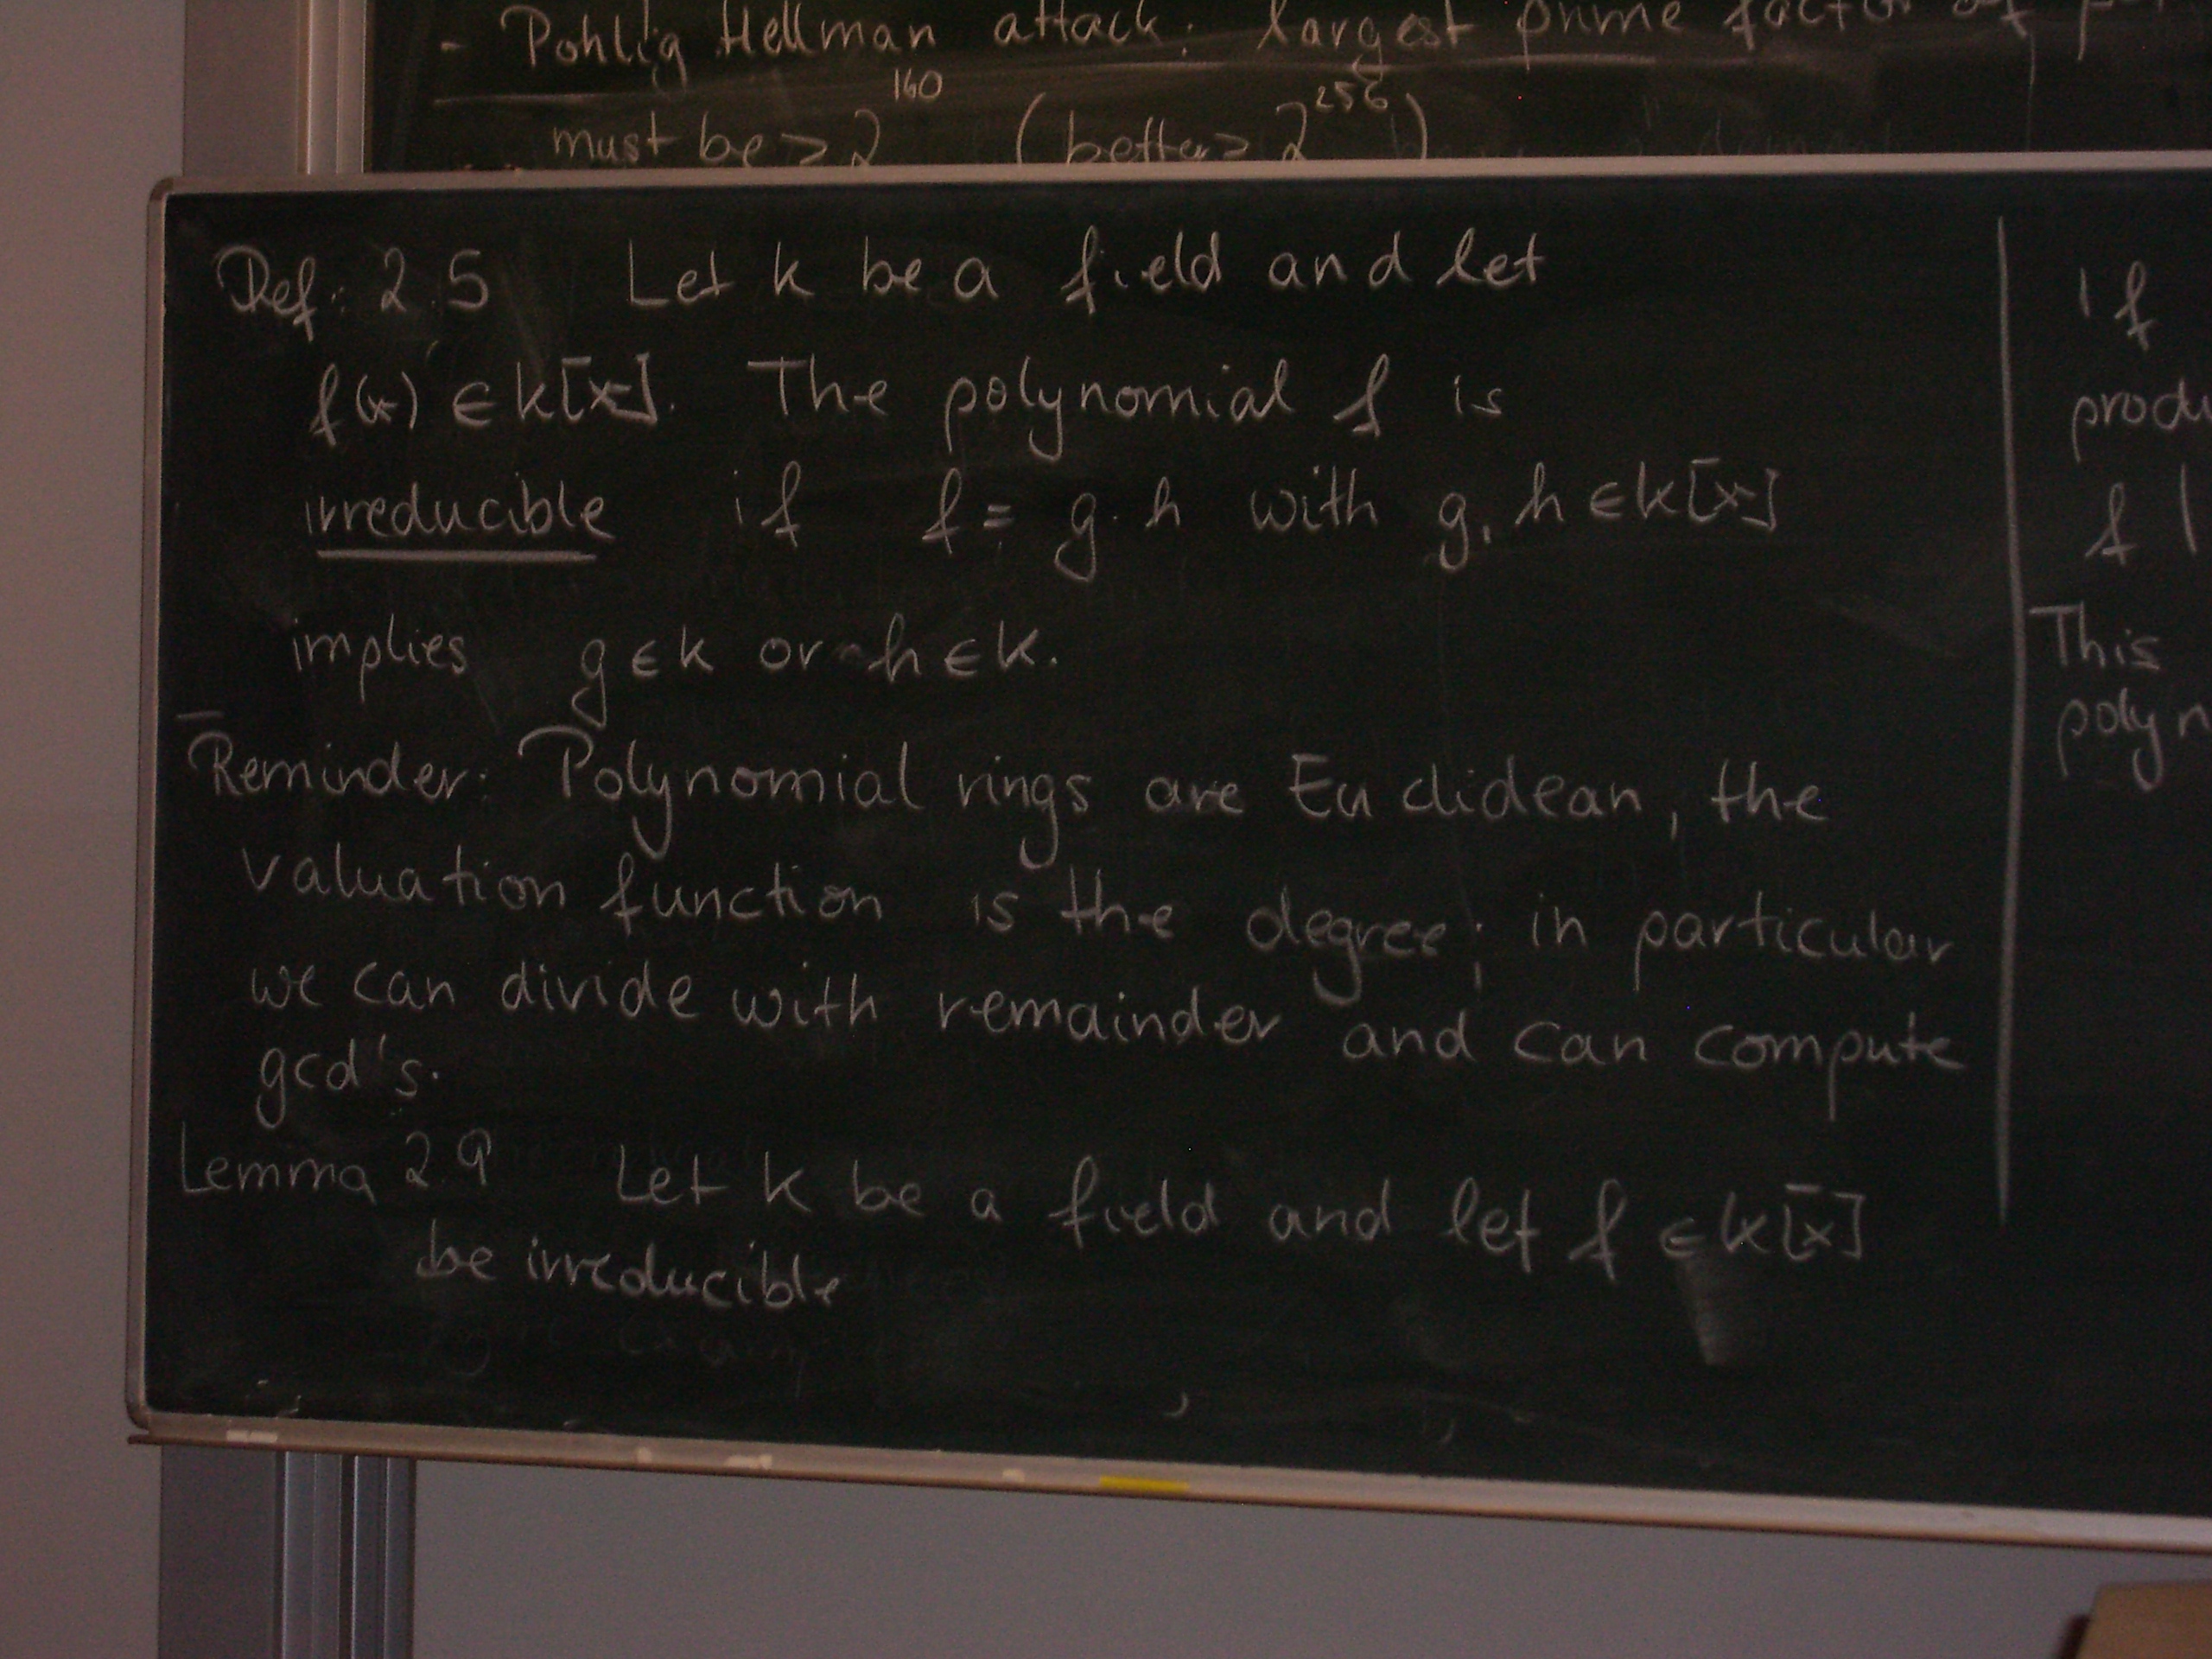 - Pohlig Hellman attack: largest prime factor of
must be > 2^160 (better > 2^256)
Def: 2.5 Let k be a field and let
f(x) ∈ k[x]. The polynomial f is
irreducible if f = g·h with g, h ∈ k[x]
implies g ∈ k or h ∈ k.
Reminder: Polynomial rings are Euclidean, the
valuation function is the degree; in particular
we can divide with remainder and can compute
gcd's.
Lemma 2.9 Let k be a field and let f ∈ k[x]
be irreducible
if
produ
f |
This
polyn